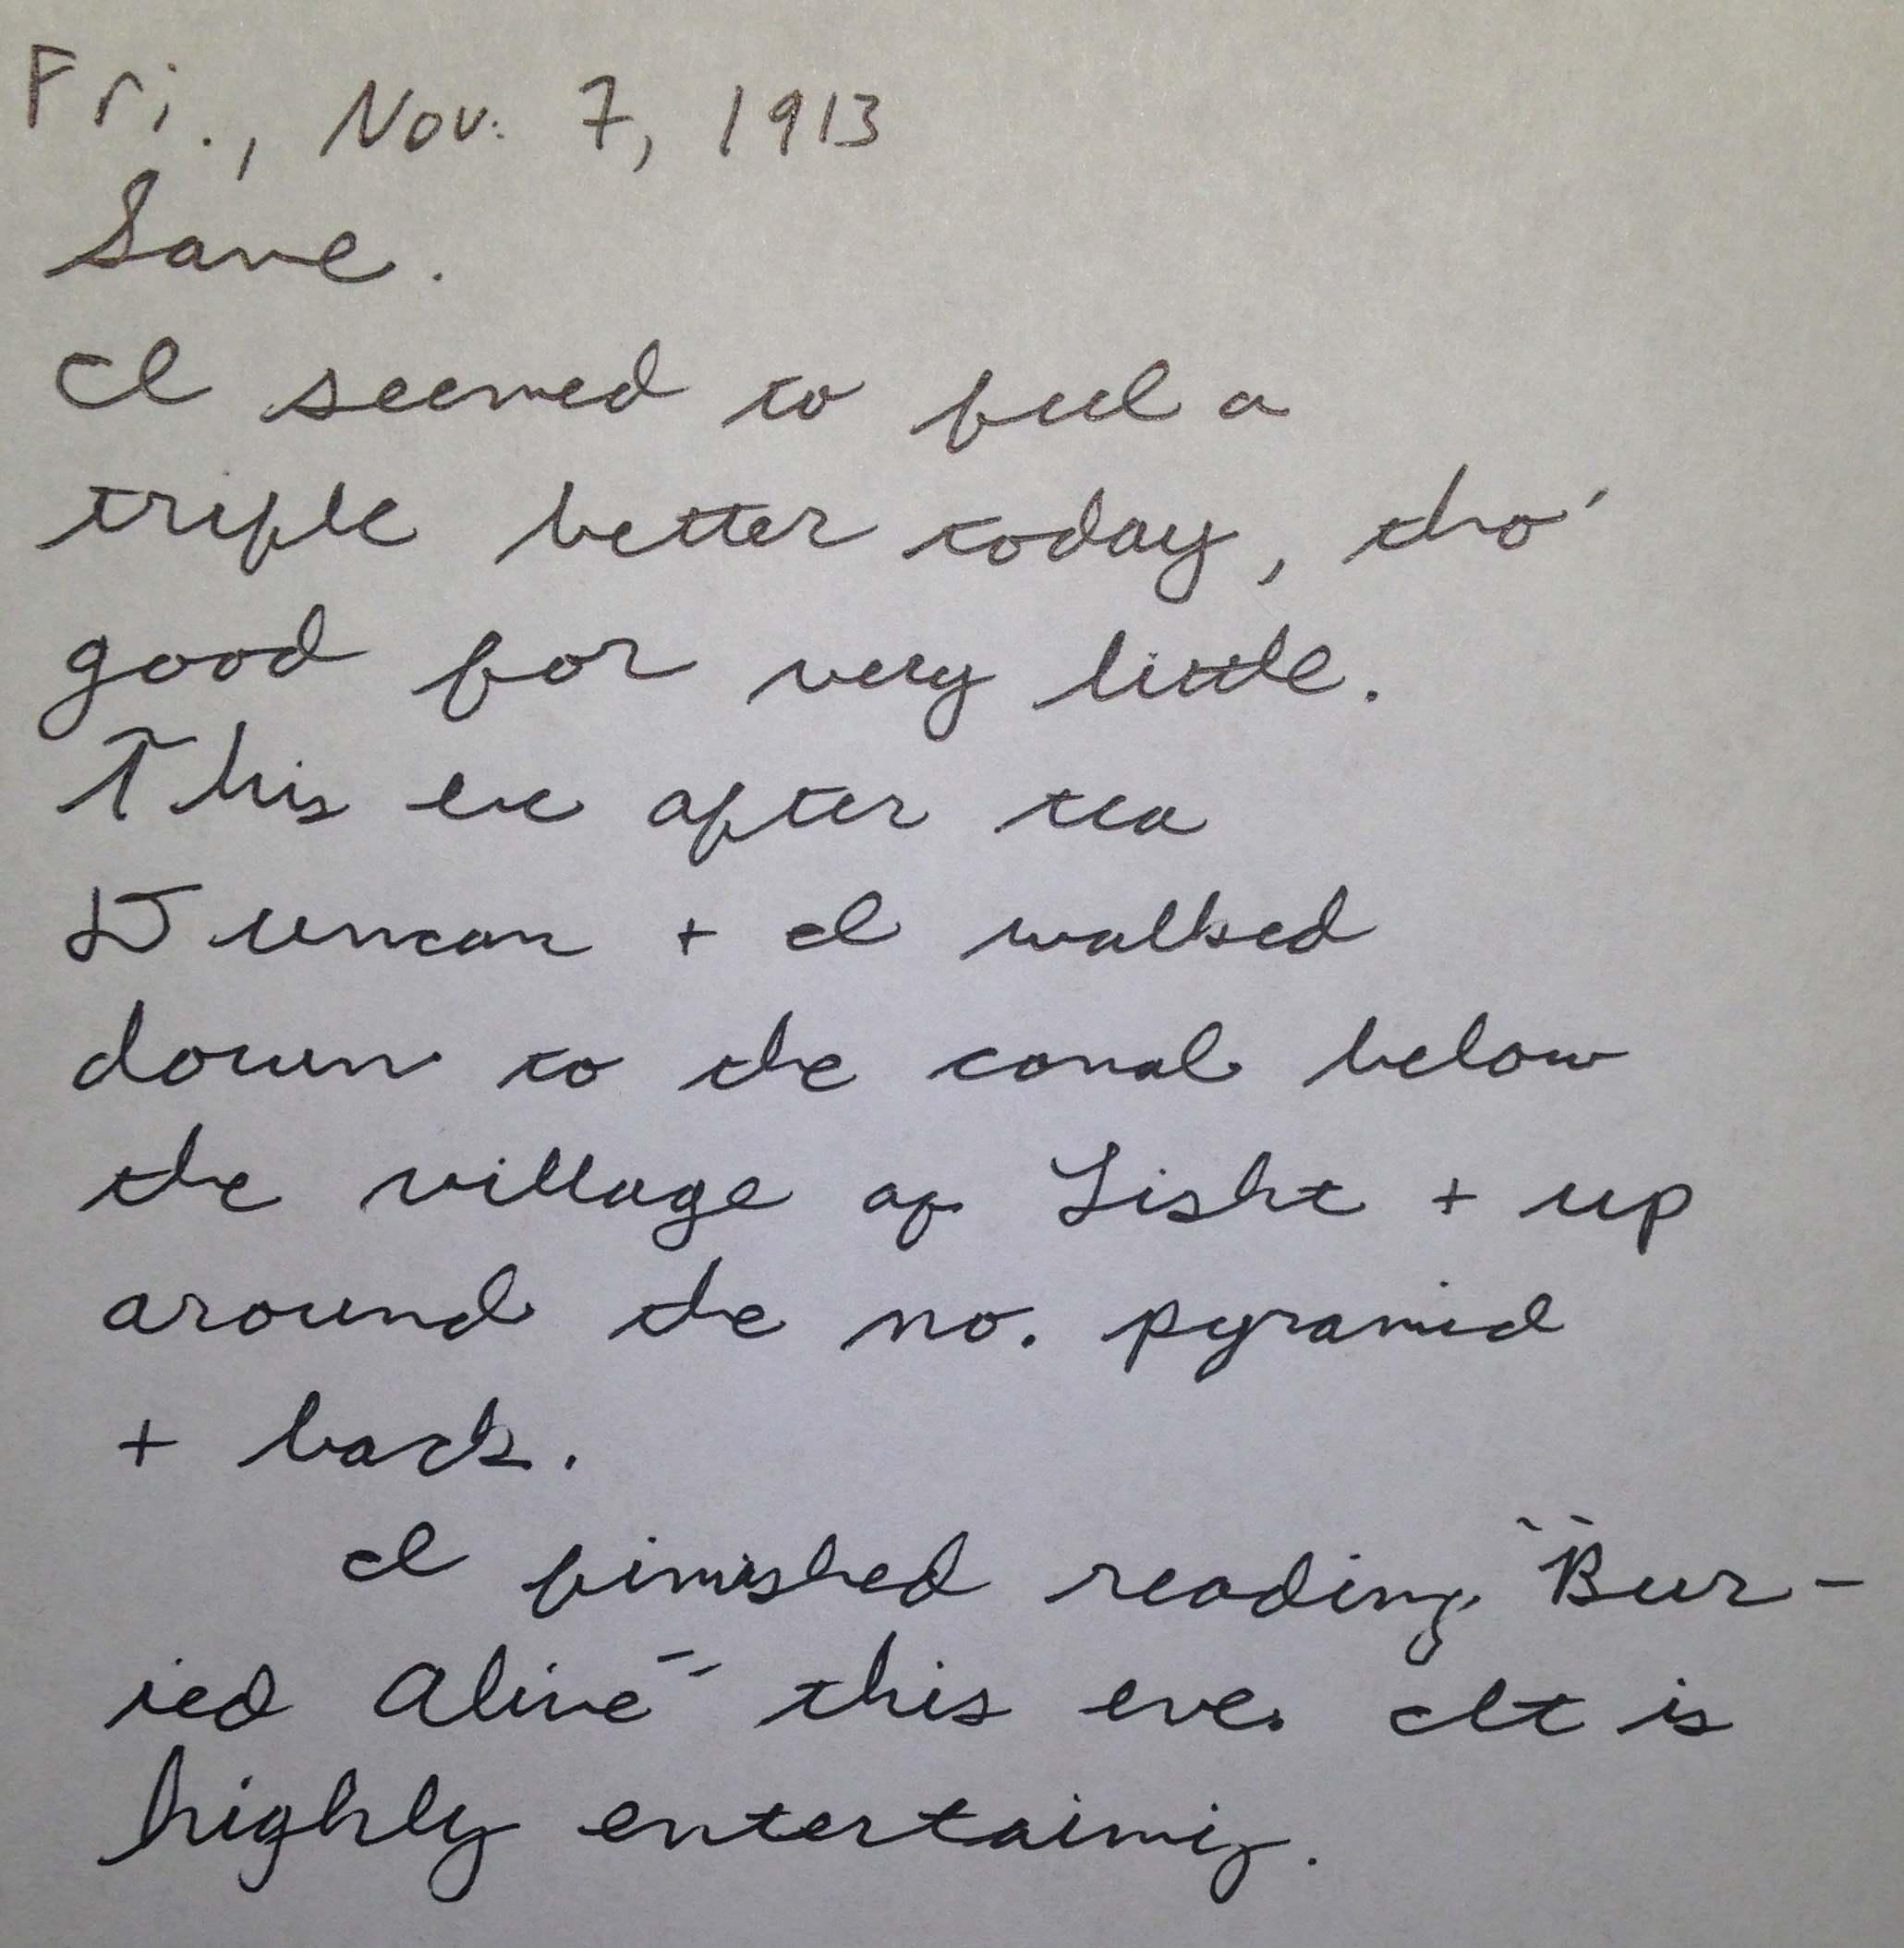 Fri., Nov. 7, 1913
Same.
I seemed to feel a
triple better today, tho'
good for very little.
This eve after tea
Duncan + I walked
down to the canal below
the village of Lisht + up
around the no. pyramid
+ back.
I finished reading "Bur-
ied Alive" this eve. It is
highly entertaining.